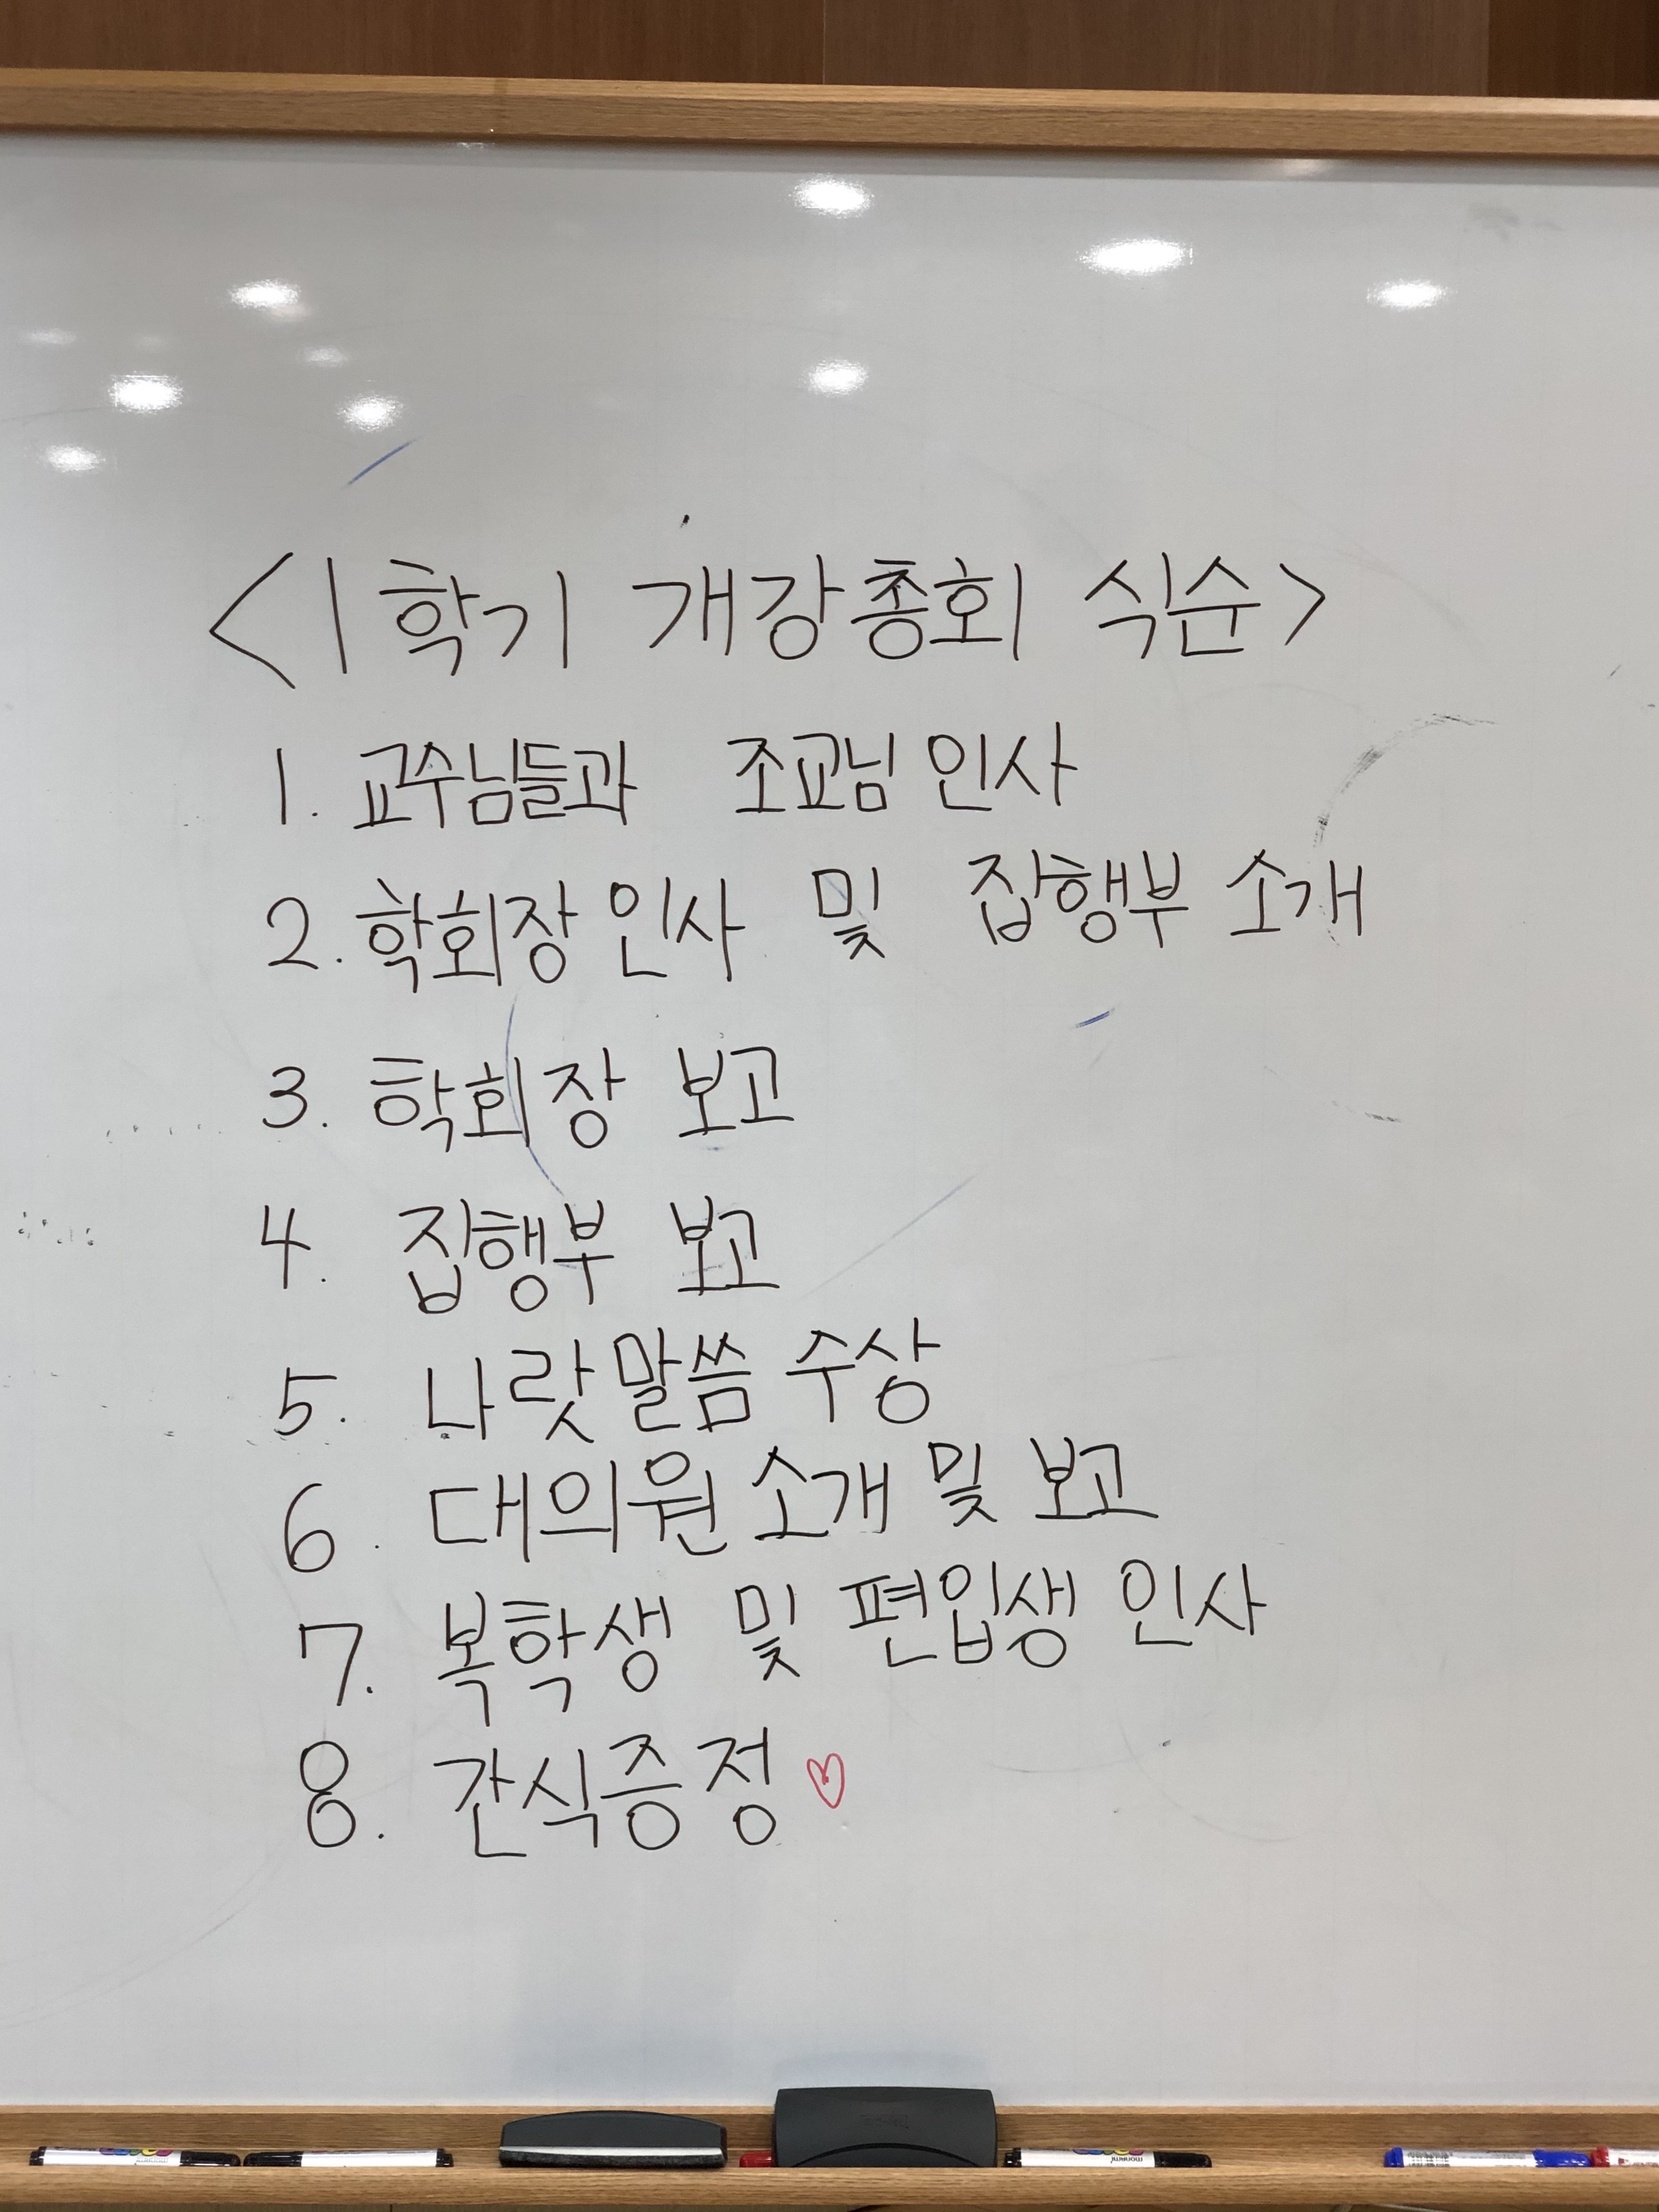 <1학기 개강총회 식순>
1. 교수님들과 조교님 인사
2. 학회장 인사 및 집행부 소개
3. 학회장 보고
4. 집행부 보고
5. 나랏말씀 수상
6. 대의원 소개 및 보고
7. 복학생 및 편입생 인사
8. 간식증정♡